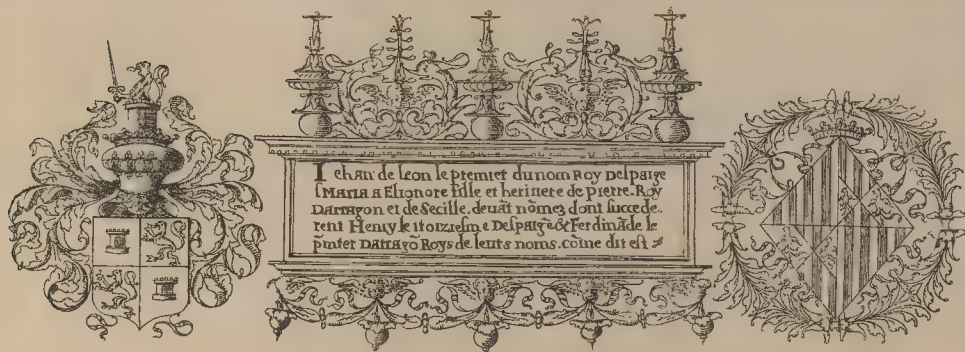 Iehan de leon le premier du nom Roy Despaige
smaria a Elionore fille et heritiere de pierre. Roy
Darragon et de Secille. devāt nōmez dont succede..
rent Henry le troiziesme Despaige & Ferdināde le
pmier Darragō Roys de leurs noms. cōme dit est